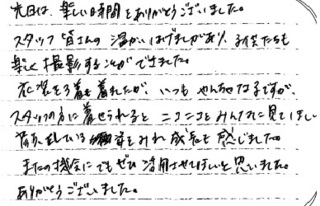 先日は、楽しい時間をありがとうございました。
スタッフ皆さんの温かいはげましがあり、子供たちも
楽しく撮影することができました。
衣裳を3着も着れたが、いつもやんちゃな子ですが、
スタッフの方に着せられると ニコニコとみんなに見てほしい
姿をみれ成長も感じました。
またの機会にでもぜひ活用させてほしいと思いました。
ありがとうございました。